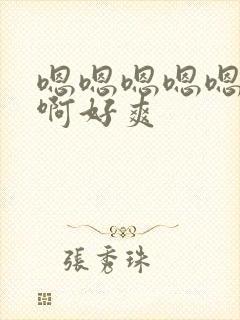 嗯嗯嗯嗯嗯
啊好爽
張秀珠